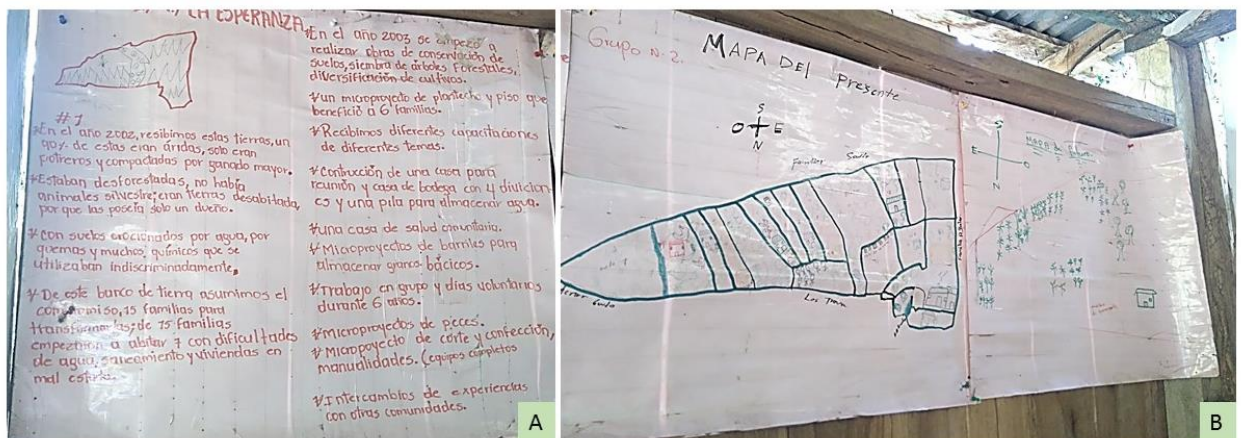 LA ESPERANZA
#1
En el año 2002, resibimos estas tierras, un
90% de estas eran áridas, solo eran
potreros y compactadas por ganado mayor.
Estaban desforestadas, no había
animales silvestre; eran tierras desabitada,
porque las poseía solo un dueño.
Con suelos erocionados por agua, por
quemas y muchos químicos que se
utilizaban indiscriminadamente,
De este banco de tierra asumimos el
compromiso, 15 familias para
transformarlas; de 15 familias
empezaron a abitar 7 con dificultades
de agua, saneamiento y viviendas en
mal estado.
En el año 2003 se empezó a
realizar obras de conservación de
suelos, siembra de árboles forestales,
diversificación de cultivos.
un microproyecto de planteche y piso que
benefició a 6 familias.
Recibimos diferentes capacitaciones
de diferentes temas.
contrucción de una casa para
reunión y casa de bodega con 4 division
es y una pila para almacenar agua.
una casa de salud comunitaria.
Microproyectos de barriles para
almacenar granos bácicos.
Trabajo en grupo y días voluntarios
durante 6 años.
microproyectos de peces.
Micropoyecto de corte y confección,
manualidades. (equipos completos
Intercambios de experiencias
con otras comunidades.
A
Grupo N. 2.
MAPA DEL Presente
S
O E
N
Familia
Los
S
E O
N
MAPA
B